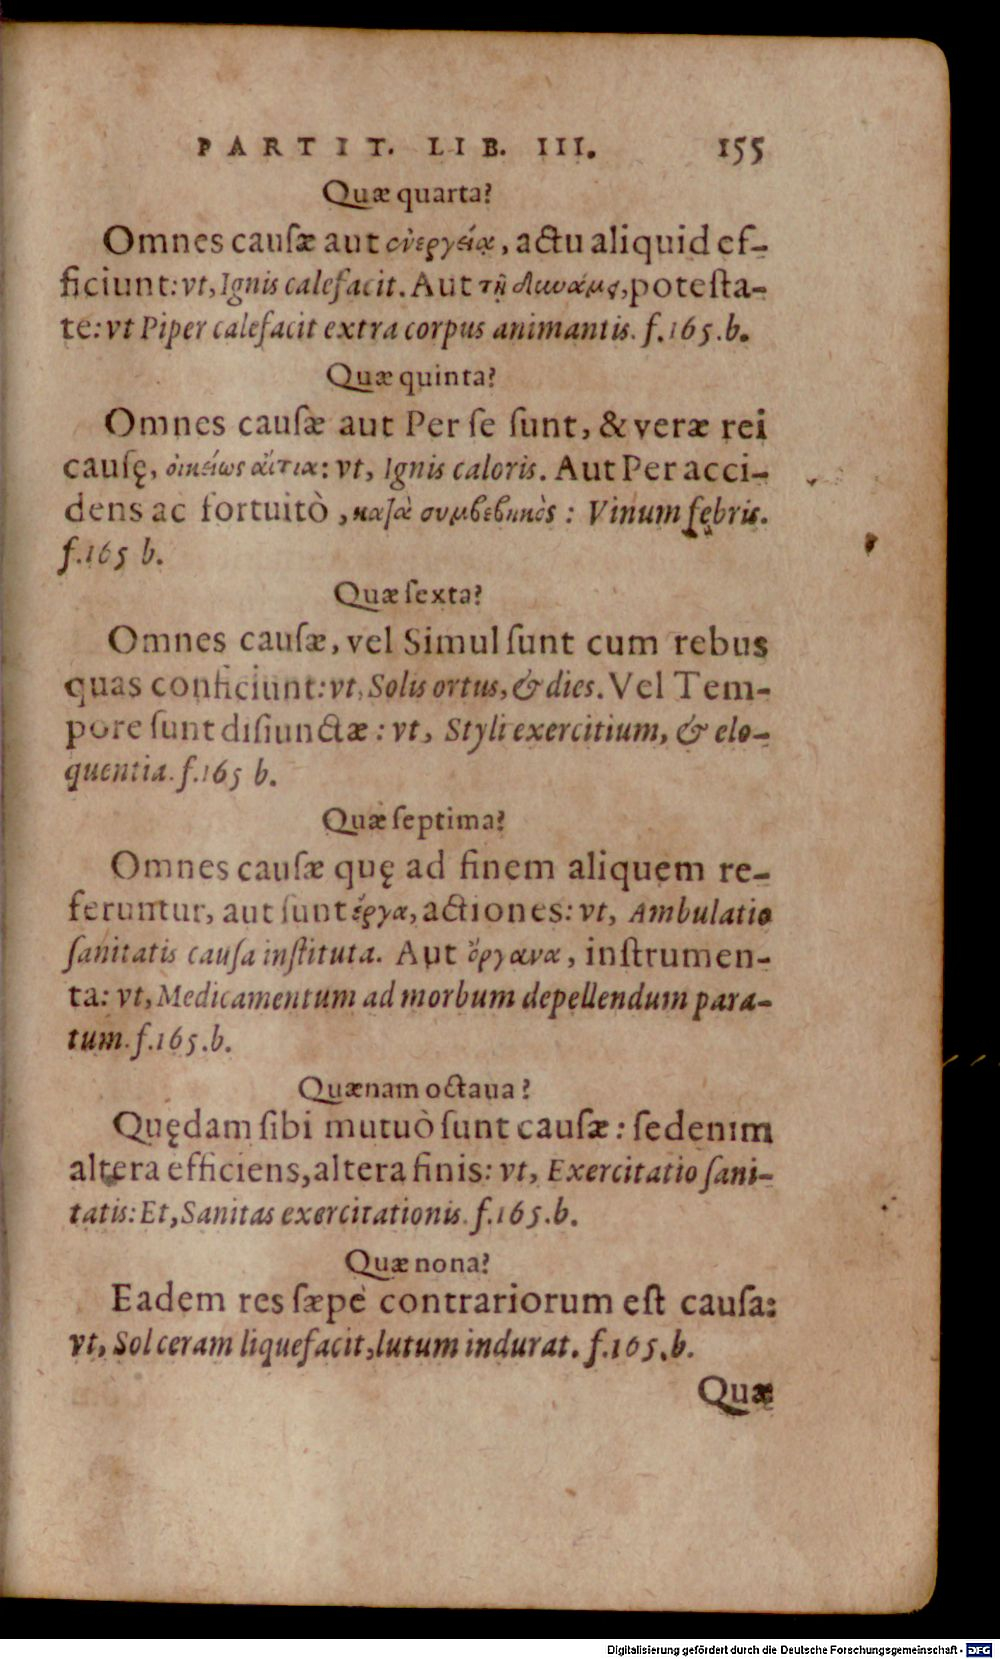 PARTIT. LIB. III. 155
Quæ quarta?
Omnes cauſæ aut ἐνεργείᾳ, actu aliquid ef-
ficiunt: vt, Ignis calefacit. Aut τῇ δυνάμει, poteſta-
te: vt Piper calefacit extra corpus animantis. f.165.b.
Quæ quinta?
Omnes cauſæ aut Per ſe ſunt, & veræ rei
cauſę, οἰκείως αἴτια: vt, Ignis caloris. Aut Per acci-
dens ac fortuitò, κατὰ συμβεβηκὸς: Vinum febris.
f.165 b.
Quæ ſexta?
Omnes cauſæ, vel Simul ſunt cum rebus
quas conficiunt: vt, Solis ortus, & dies. Vel Tem-
pore ſunt diſiunctæ: vt, Styli exercitium, & elo-
quentia. f.165 b.
Quæ ſeptima?
Omnes cauſæ quę ad finem aliquem re-
feruntur, aut ſunt ἔργα, actiones: vt, Ambulatio
ſanitatis cauſa inſtituta. Aut ὄργανα, inſtrumen-
ta: vt, Medicamentum ad morbum depellendum para-
tum. f.165.b.
Quænam octaua?
Quędam ſibi mutuò ſunt cauſæ: ſed enim
altera efficiens, altera finis: vt, Exercitatio ſani-
tatis: Et, Sanitas exercitationis. f.165.b.
Quæ nona?
Eadem res ſæpe contrariorum eſt cauſa:
vt, Sol ceram liquefacit, lutum indurat. f.165.b.
Quæ
Digitalisierung gefördert durch die Deutsche Forschungsgemeinschaft - DFG